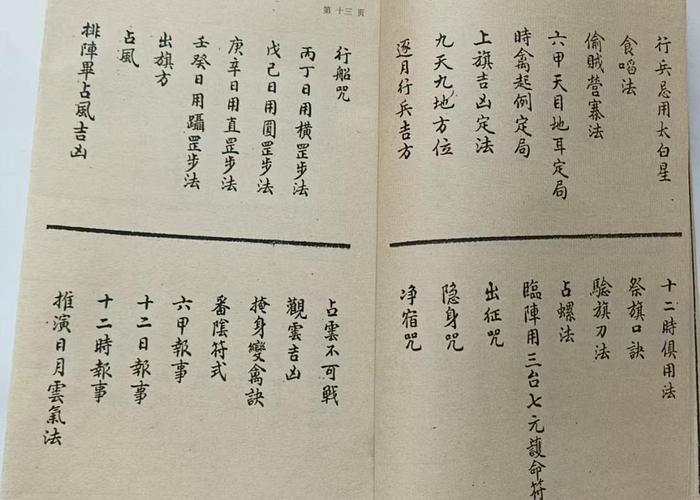 行兵忌用太白星
食啗法
偷賊營寨法
六甲天目地耳定局
時禽起例定局
上旗吉凶定法
九天九地方位
逐月行兵吉方
十二時俱用法
祭旗口訣
驗旗刀法
占螺法
臨陣用三台七元護命符
出征咒
隐身咒
净宿咒
第十三頁
行船咒
丙丁日用橫罡步法
戊己日用圓罡步法
庚辛日用直罡步法
壬癸日用躡罡步法
出旗方
占風
排陣畢占風吉凶
占雲不可戰
觀雲吉凶
掩身變禽訣
番陰符式
六甲報事
十二日報事
十二時報事
推演日月雲氣法